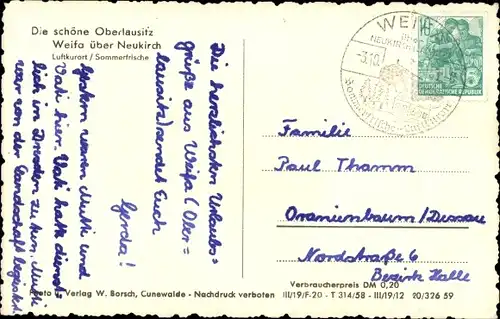 Die schöne Oberlausitz
Weifa über Neukirch
Luftkurort / Sommerfrische
Die herzlichsten Urlaubs=
grüße aus Weifa (Ober=
lausitz) sendet Euch
Gerda!
Gestern waren Mutti und
Vati hier. Vati hatte dienst=
lich in Dresden zu tun. Mutti
war von der Landschaft begeistert.
WEIFA
NEUKIRCH
DEUTSCHE
DEMOKRATISCHE REPUBLIK
5
Familie
Paul Thamm
Oranienbaum/Dessau
Nordstraße 6
Bezirk Halle
Verbraucherpreis DM 0,20
Foto u. Verlag W. Borsch, Cunewalde - Nachdruck verboten III/19/F-20 - T 314/58 - III/19/12 20/326 59